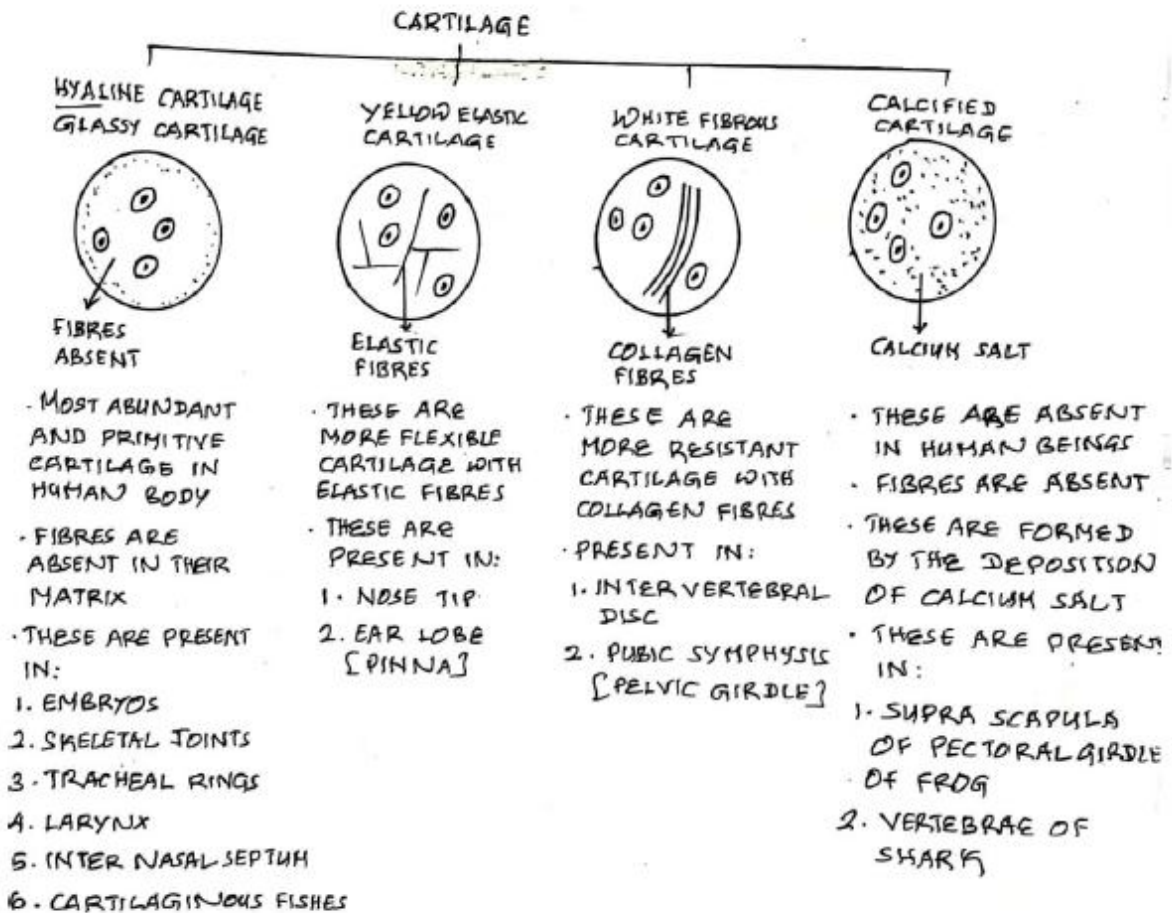 CARTILAGE
HYALINE CARTILAGE
GLASSY CARTILAGE
FIBRES
ABSENT
· MOST ABUNDANT
AND PRIMITIVE
CARTILAGE IN
HUMAN BODY
· FIBRES ARE
ABSENT IN THEIR
MATRIX
· THESE ARE PRESENT
IN:
1. EMBRYOS
2. SKELETAL JOINTS
3. TRACHEAL RINGS
4. LARYNX
5. INTER NASAL SEPTUM
6. CARTILAGINOUS FISHES
YELLOW ELASTIC
CARTILAGE
ELASTIC
FIBRES
· THESE ARE
MORE FLEXIBLE
CARTILAGE WITH
ELASTIC FIBRES
· THESE ARE
PRESENT IN:
1. NOSE TIP
2. EAR LOBE
[PINNA]
WHITE FIBROUS
CARTILAGE
COLLAGEN
FIBRES
· THESE ARE
MORE RESISTANT
CARTILAGE WITH
COLLAGEN FIBRES
· PRESENT IN:
1. INTER VERTEBRAL
DISC
2. PUBIC SYMPHYSIS
[PELVIC GIRDLE]
CALCIFIED
CARTILAGE
CALCIUM SALT
· THESE ARE ABSENT
IN HUMAN BEINGS
· FIBRES ARE ABSENT
· THESE ARE FORMED
BY THE DEPOSITION
OF CALCIUM SALT
· THESE ARE PRESENT
IN:
1. SUPRA SCAPULA
OF PECTORAL GIRDLE
OF FROG
2. VERTEBRAE OF
SHARK